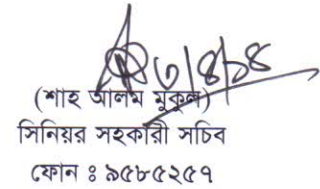 ৩/৪/১৪
(শাহ আলম মুকুল)
সিনিয়র সহকারী সচিব
ফোন ঃ ৯৫৮৫২৫৭